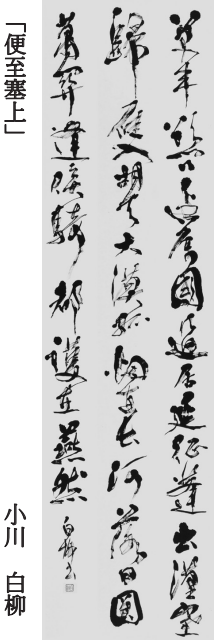 單車欲問邊屬國過居延征蓬出漢塞
歸雁入胡天大漠孤烟直長河落日圓
蕭關逢候騎都護在燕然 白柳書
「便至塞上」 小川 白柳